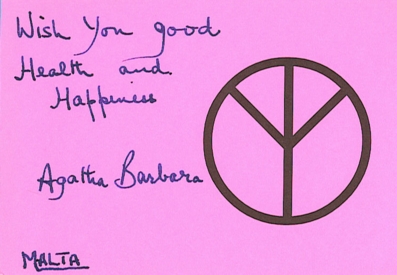 Wish You good
Health and
Happiness
Agatha Barbara
MALTA